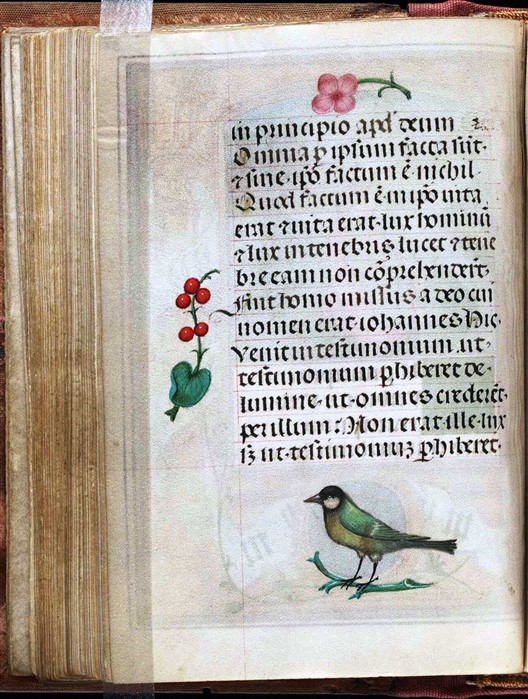 in principio apd̄ deum ⁊
Omnia p̱ ipsum facta sūt·
⁊ sine·ip̄o factum ē·nichil·
Quod factum ē·in ip̄o vita
erat ⁊ vita erat·lux hominū
⁊ lux in tenebris lucet ⁊ tene
bre eam non cōprehenderūt·
fuit homo missus a deo cui
nomen erat·iohannes Hic
venit in testimonium .ut·
testimonium p̱hiberet de·
lumine·ut·omnes crederēt·
per illum: Non erat·ille·lux
sꝫ ut·testimoniuꝫ p̱hiberet·